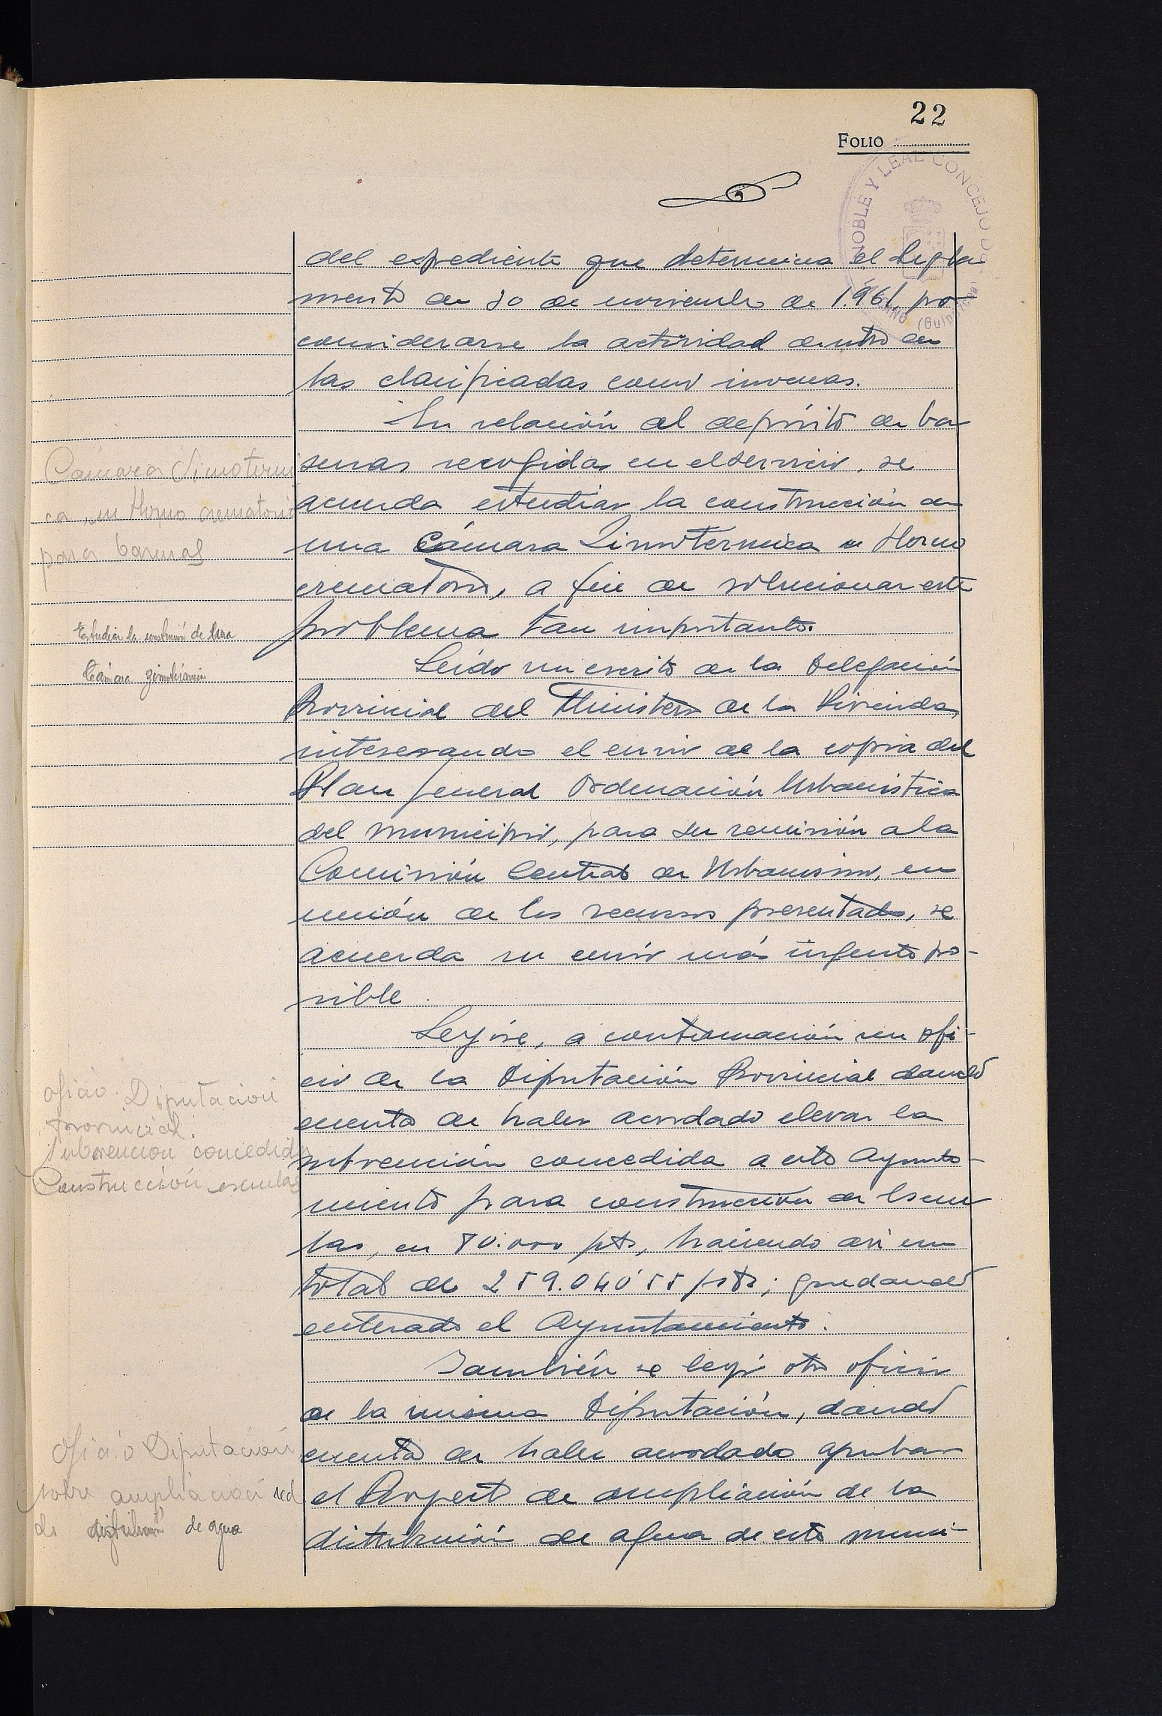 22
FOLIO
NOBLE Y LEAL CONCEJO DE
(Guipúzcoa)
del expediente que determina el Regla
mento de 30 de noviembre de 1.961, por
considerarse la actividad dentro de
las clasificadas como inocuas.
En relación al depósito de ba
suras recogidas en el servicio, se
acuerda estudiar la construcción de
una Cámara Zimotermica u Horno
crematorio, a fin de solucionar este
problema tan importante.
Leído un escrito de la Delegación
Provincial del Ministerio de la Vivienda,
interesando el envio de la copia del
Plan General Ordenación Urbanistica
del municipio, para su remisión a la
Comisión Central de Urbanismo, en
unión de los recursos presentados, se
acuerda su envio más urgente po-
sible.
Leyóse, a continuación un ofi-
cio de la Diputación Provincial dando
cuenta de haber acordado elevar la
subvención concedida a este Ayunta-
miento para construcción de Escue
las, en 80.000 pts, haciendo asi un
total de 259.040'55 pts; quedando
enterado el Ayuntamiento.
También se leyó otro oficio
de la misma Diputación, dando
cuenta de haber acordado aprobar
el Proyecto de ampliación de la
distribución de agua de este muni-
Cámara Zimotermi
ca un Horno crematorio
para basuras
Estudiar la construcción de una
Cámara zimotérmica
Oficio Diputación
Provincial.
Subvención concedida
Construcción escuelas
Oficio Diputación
sobre ampliación red
de distribución de agua